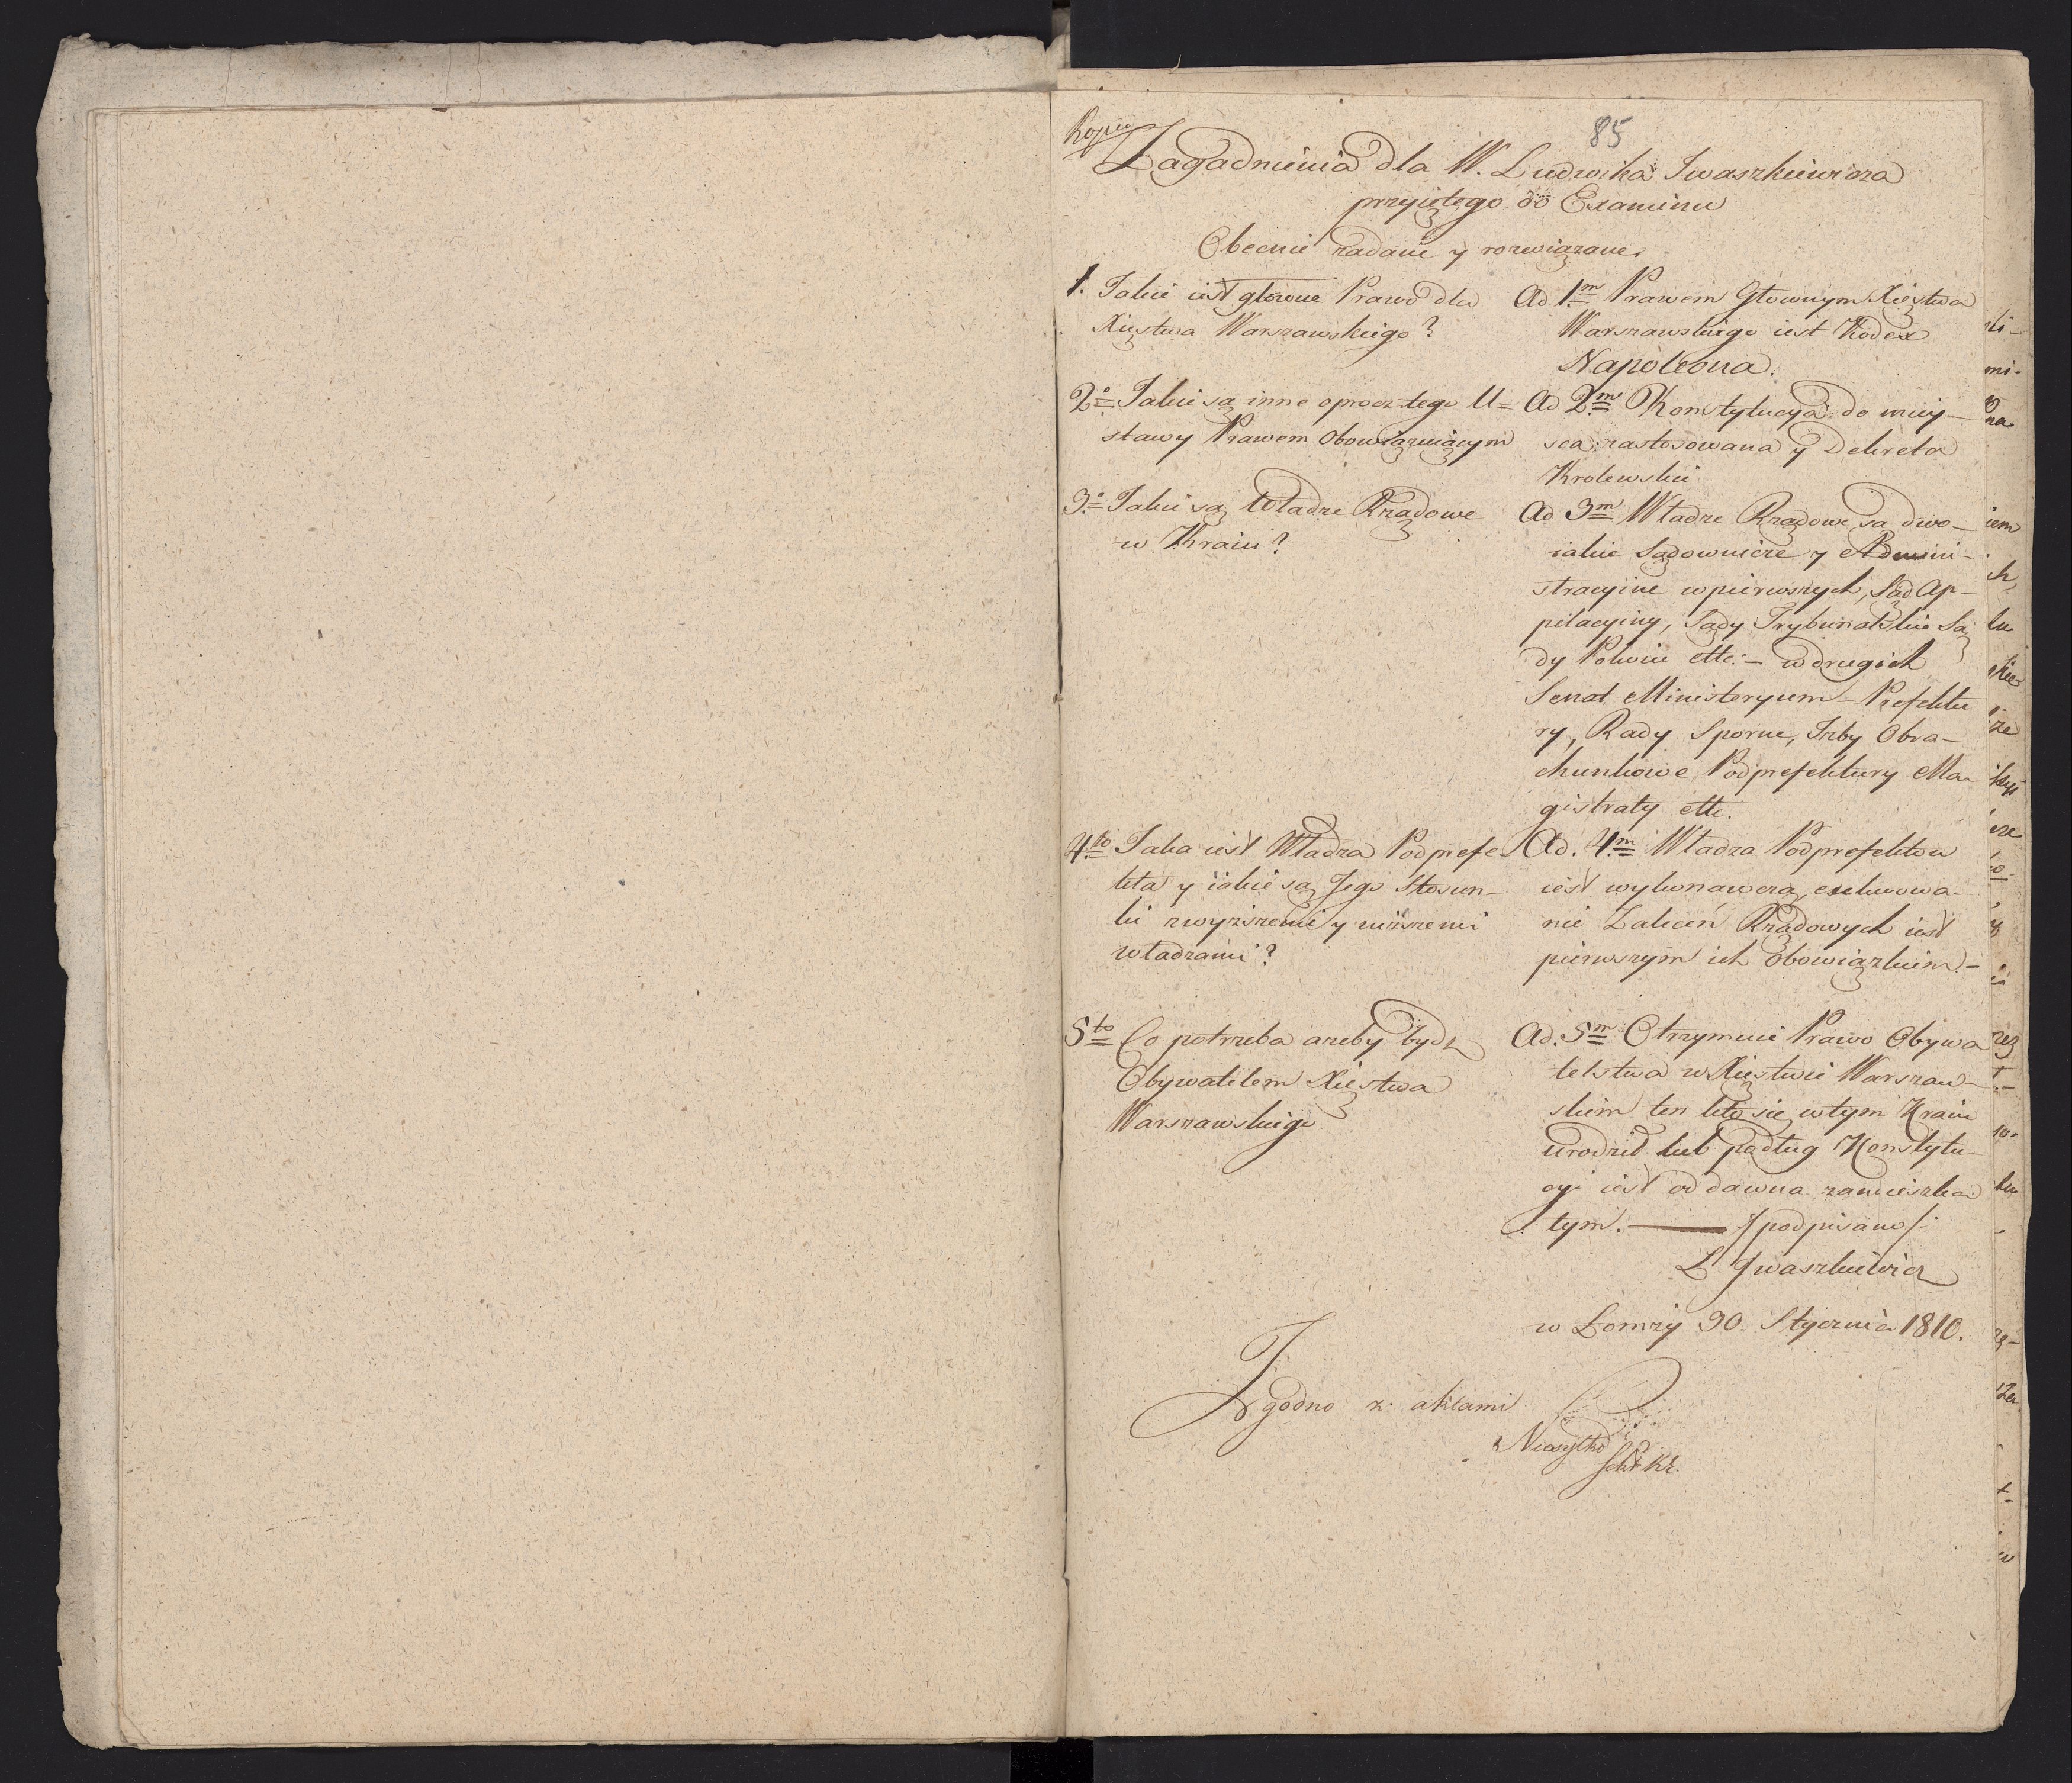 Kopia
85
Zagadnienia dla W. Ludwika Iwaszkiewicza
przyiętego do Examinu
Obecnie zadane y rozwiązane.
1. Jakie iest głowne Prawo dla
Xięstwa Warszawskiego?
Ad 1.m Prawem Głownym Xięstwa
Warszawskiego iest Kodex
Napoleona.
2o Jakie są inne oprocz tego U=
stawy Prawem Obowiązuiącym
Ad 2.m Konstytucya do miey-
sca zastosowana y Dekreta
Krolewskie
3.o Jakie są Władze Rządowe
w Kraiu?
Ad 3m Władze Rządowe są dwo-
iakie Sądownicze y Admini-
stracyine w pierwszych, Sąd Ap-
pelacyiny, Sądy Trybunalskie Są
dy Pokoiu ettc:- w drugich
Senat Ministeryum - Prefektu
ry, Rady Sporne, Izby Obra-
chunkowe Podprefektury Ma-
gistraty ettc.
4.to Jaka iest Władza Podprefe-
kta y iakie są Jego Stosun-
ki z wyższemi y niższemi
władzami?
Ad. 4.m Władza Podprefektow
iest wykonawczą, exekwowa-
nie Zaleceń Rządowych iest
pierwszym ich Obowiązkiem.-
5to Co potrzeba ażeby bydz
Obywatelem Xięstwa
Warszawskiego
Ad. 5m Otrzymuie Prawo Obywa
telstwa w Xięstwie Warszaw-
skiem ten kto się w tym Kraiu
urodził lub podług Konstytu-
cyi iest od dawna zamieszka
tym. /podpisano/:
L Iwaszkiewicz
w Łomży 30. Stycznia 1810.
Zgodno z aktami